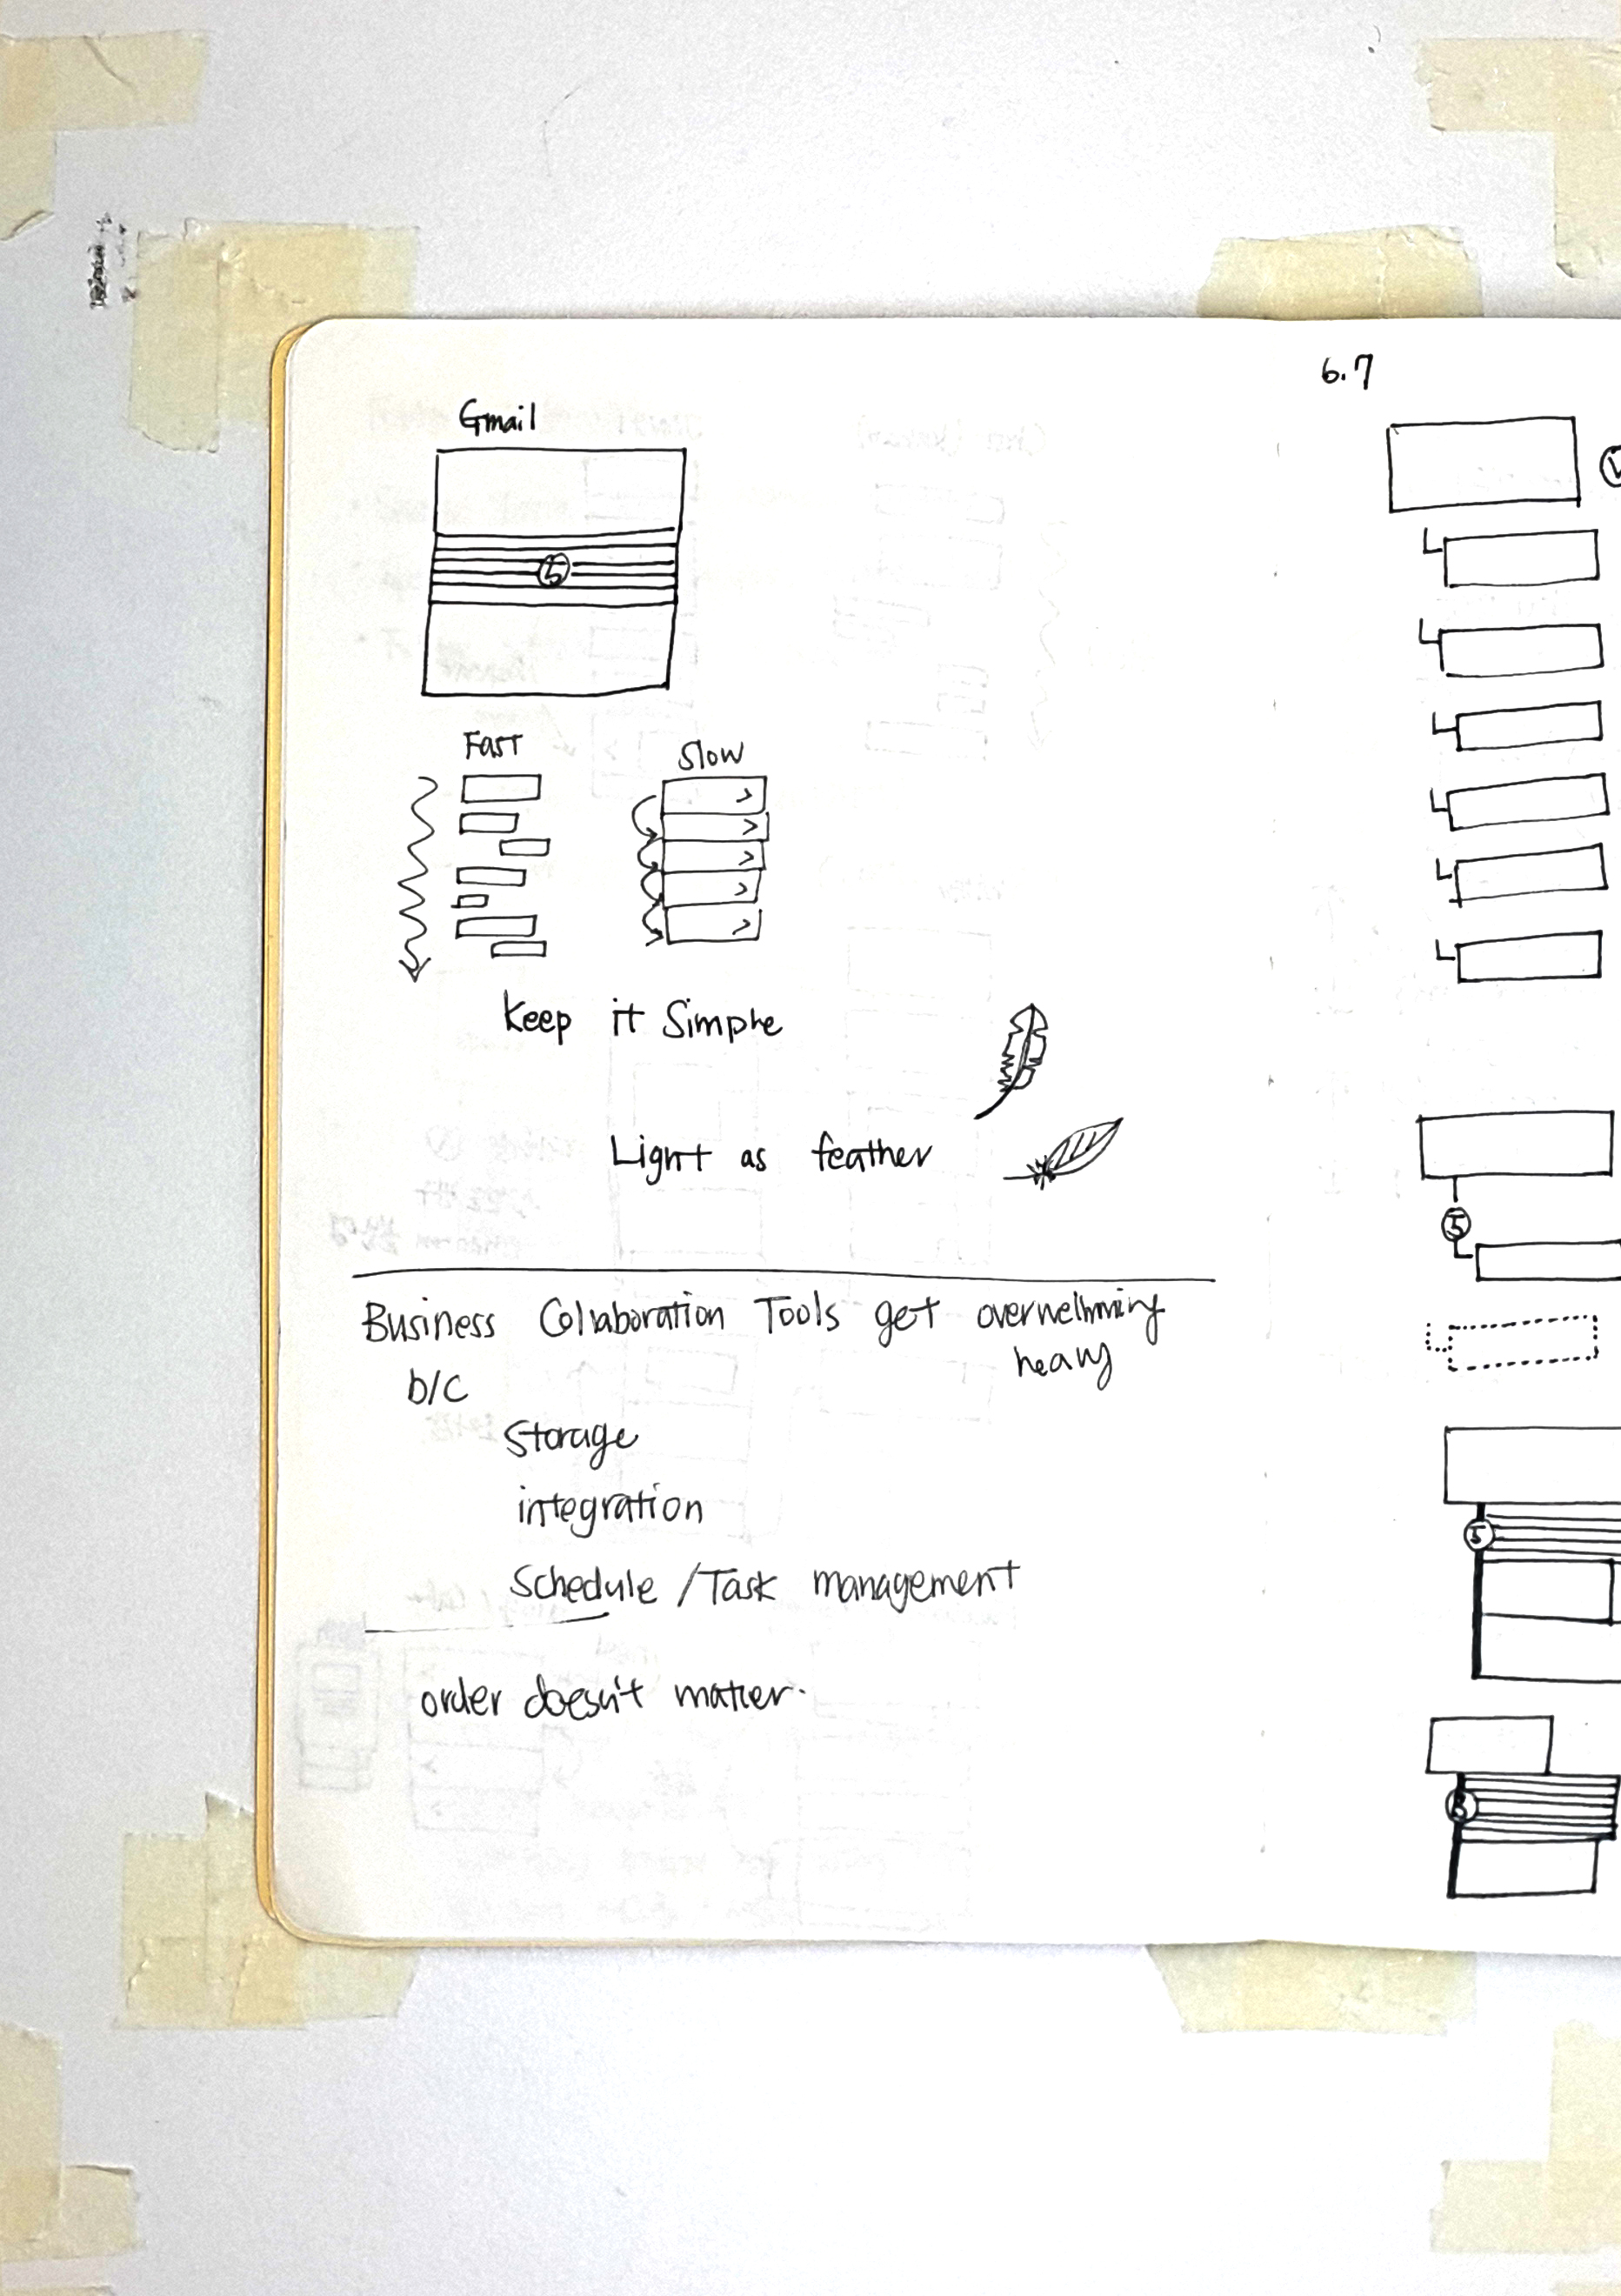 Gmail
5
Fast
Slow
Keep it Simple
Light as feather
Business Collaboration Tools get overwhelming
heavy
b/c
Storage
integration
Schedule / Task management
order doesn't matter.
6.7
5
5